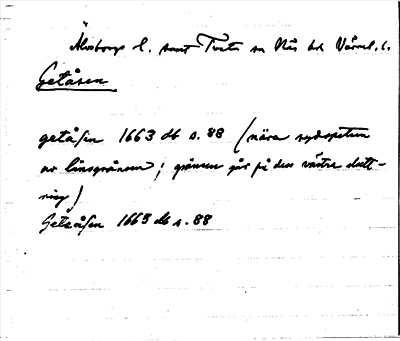 Älvsborgs l. samt Tveta sn Näs hd Värml. l.
Getåsen
getåſen 1663 db s. 88 (nära sydspetsen
av länsgränsen; gränsen går på dess västra slutt-
ning)
Getåſen 1665 db s. 88